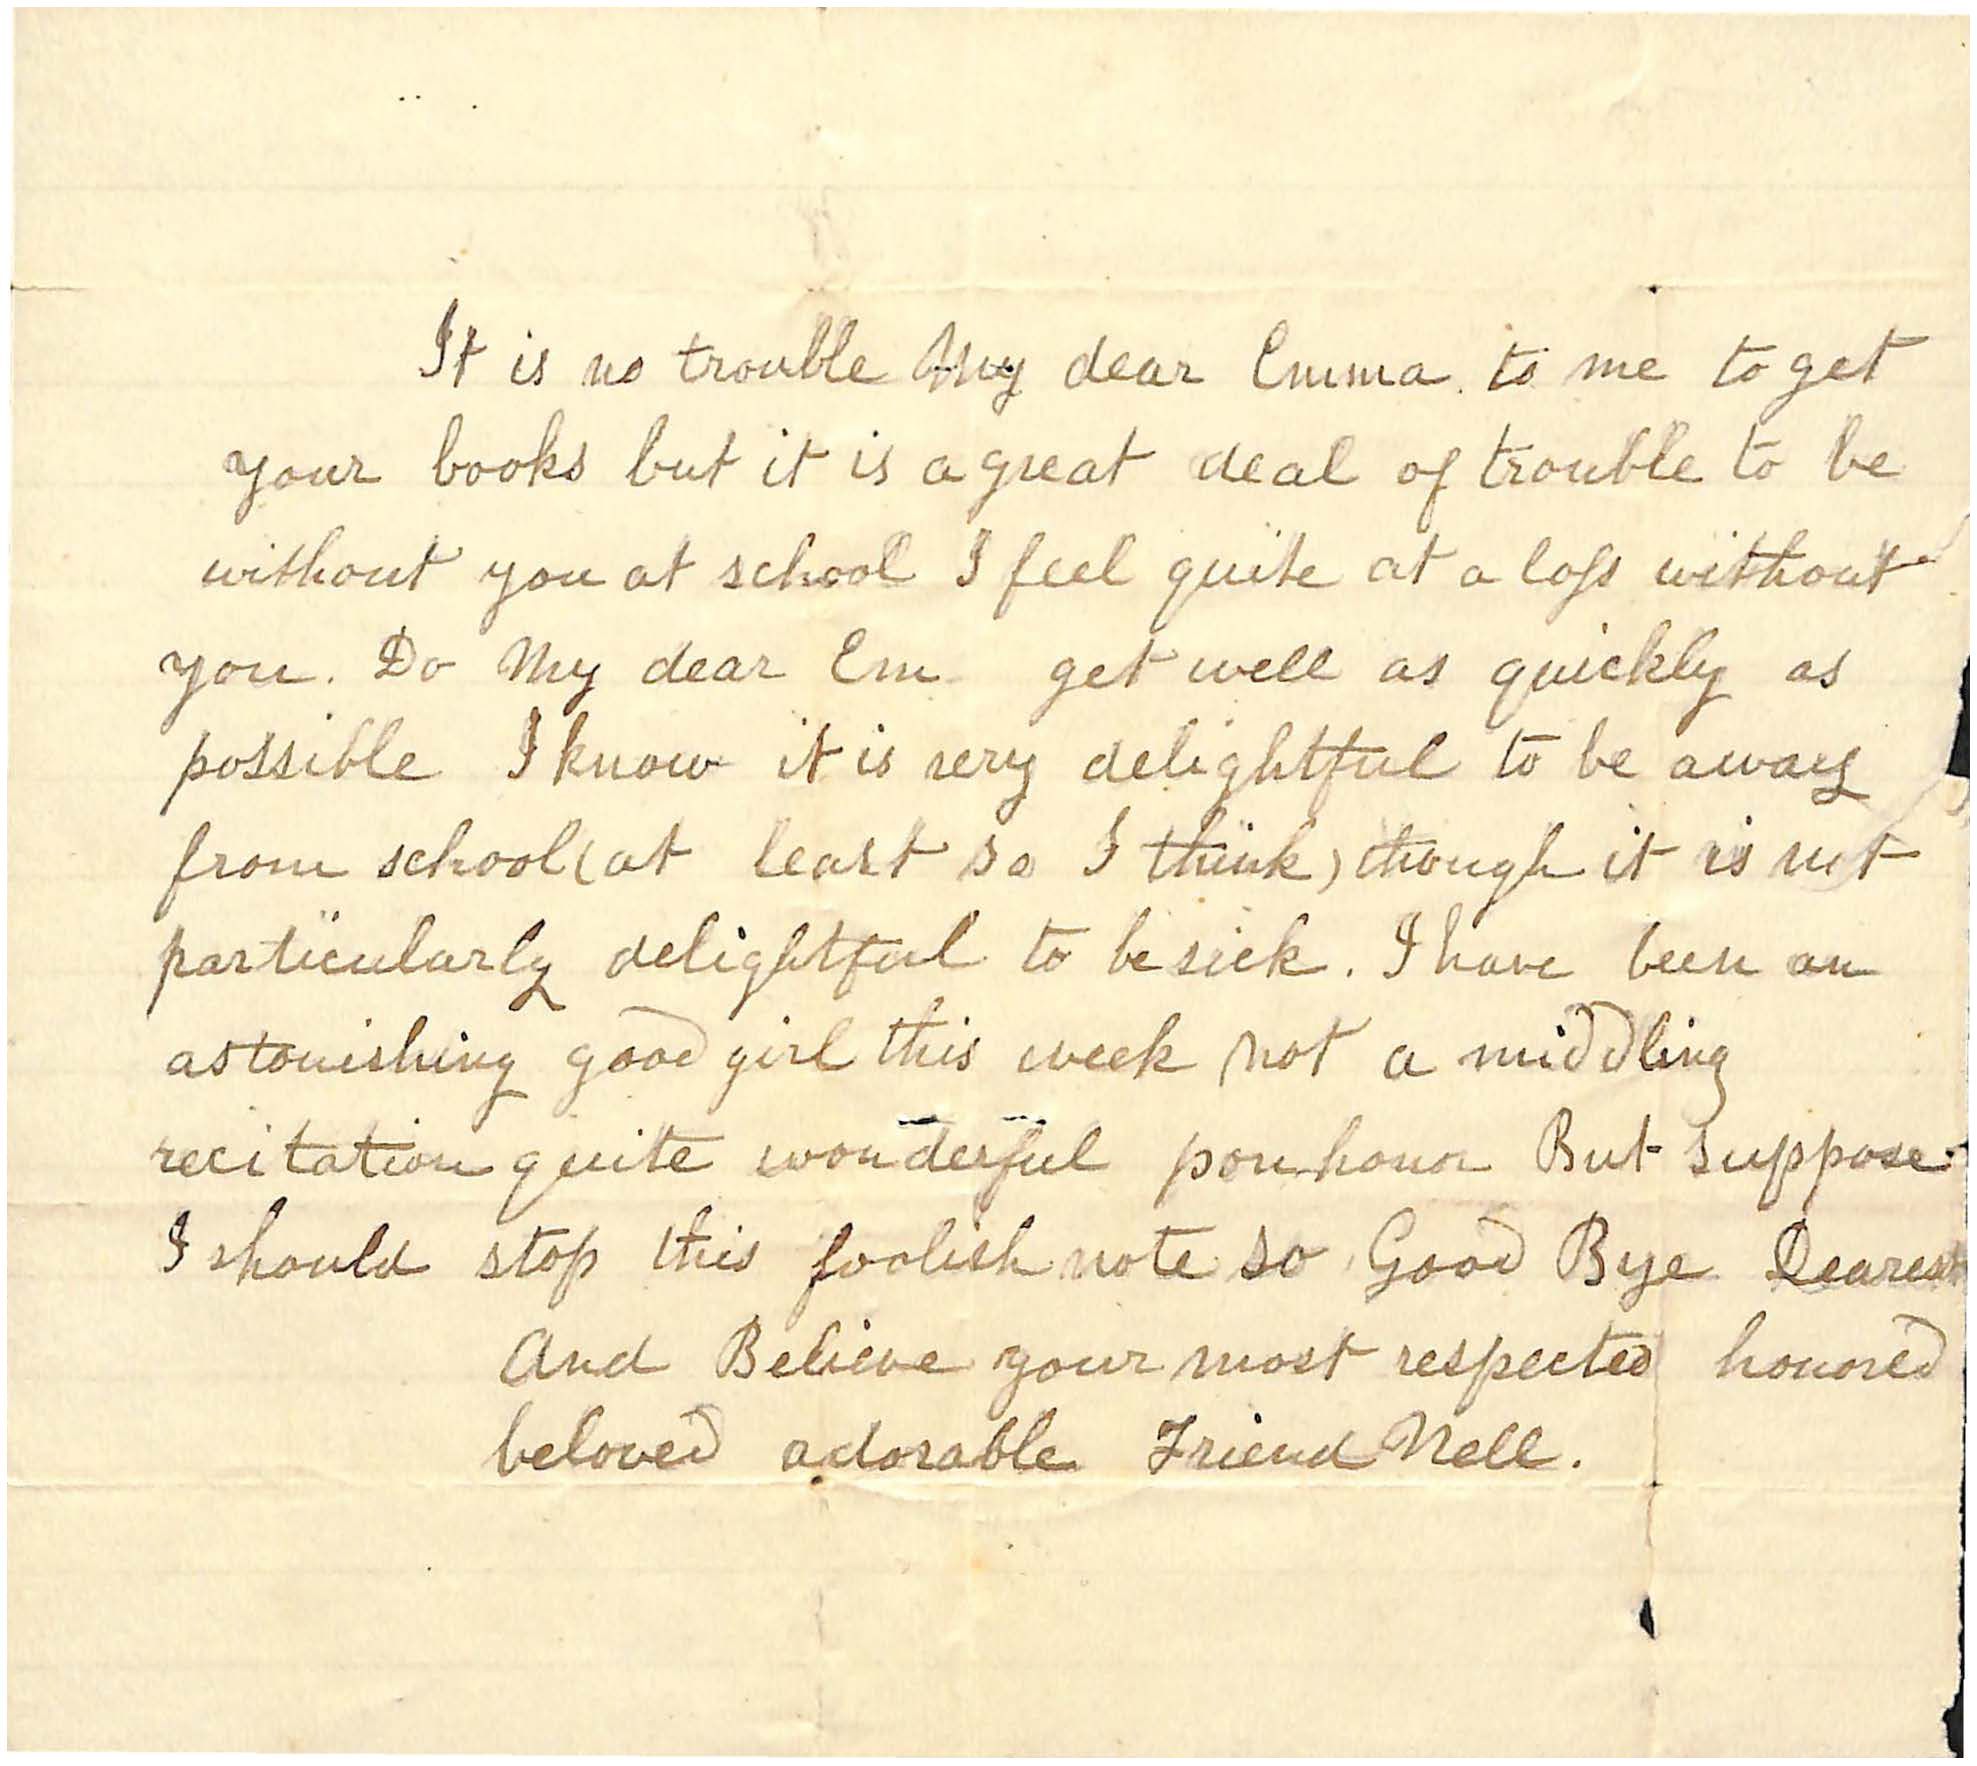 It is no trouble My dear Emma to me to get
your books but it is a great deal of trouble to be
without you at school I feel quite at a loss without
you. Do My dear Em get well as quickly as
possible I know it is very delightful to be away
from school (at least so I think) though it is not
particularly delightful to be sick. I have been an
astonishing good girl this week not a middling
recitation quite wonderful pon honor But suppose
I should stop this foolish note so Good Bye Dearest
And Believe your most respected honored
beloved adorable Friend Nell.